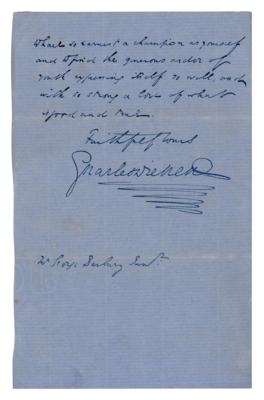 so earnest a champion as yourself
and to find the generous ardor of
youth expressing itself so well, and
with so strong a love of what
is good and true.
Faithfully Yours
Charles Dickens